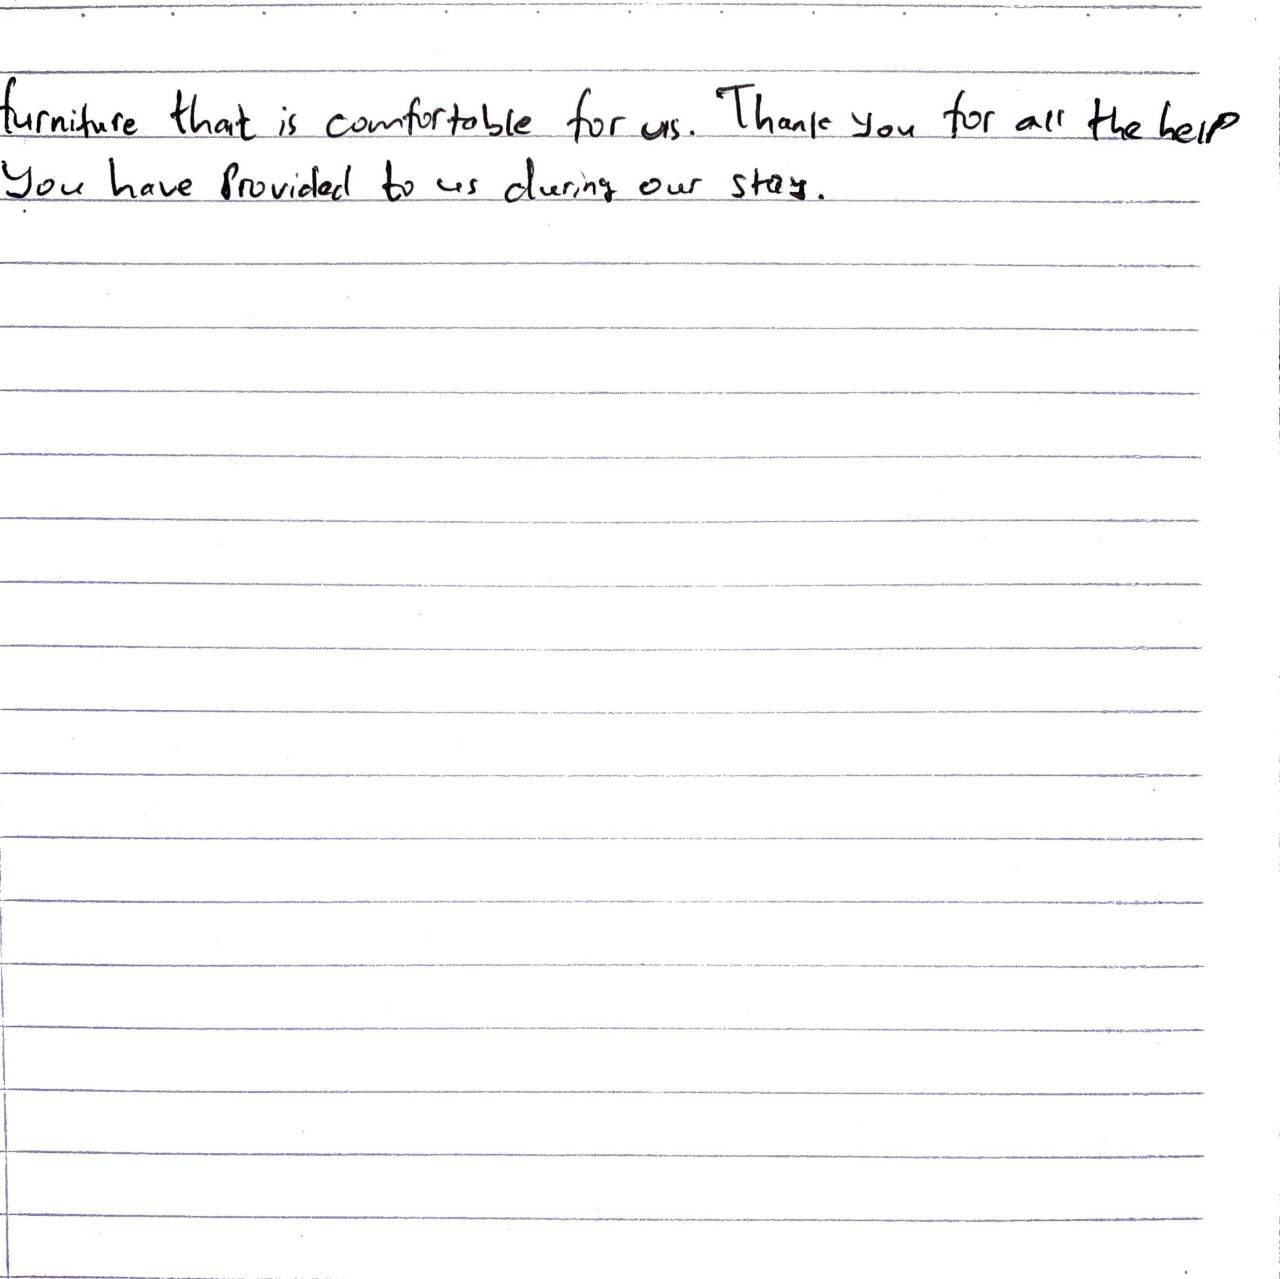 furniture that is comfortable for us. Thank you for all the help
you have provided to us during our stay.